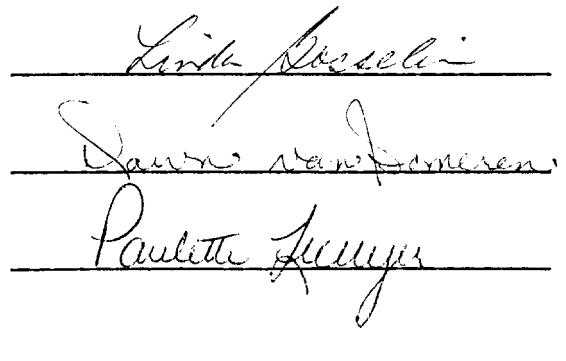 Linda Gosselin
Dawn van Someren
Paulette